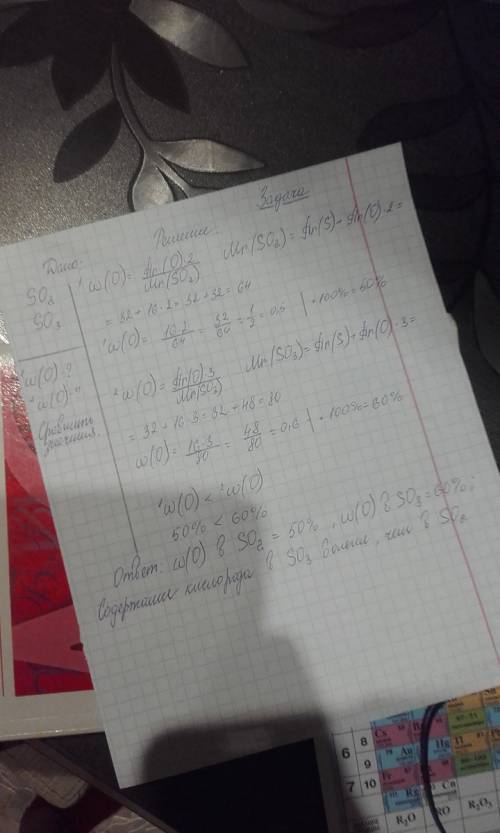 Задача
Дано:
SO₂
SO₃
¹w(O)-?
²w(O)-?
Сравнить
значения.
Решение:
¹w(O) = Ar(O)·2 / Mr(SO₂)   Mr(SO₂) = Ar(S) + Ar(O)·2 =
= 32 + 16·2 = 32 + 32 = 64
¹w(O) = 16·2 / 64 = 32 / 60 = 1 / 2 = 0,5 | · 100% = 50%
²w(O) = Ar(O)·3 / Mr(SO₃)   Mr(SO₃) = Ar(S) + Ar(O)·3 =
= 32 + 16·3 = 32 + 48 = 80
w(O) = 16·3 / 80 = 48 / 80 = 0,6 | · 100% = 60%
¹w(O) < ²w(O)
50% < 60%
Ответ: w(O) в SO₂ = 50%, w(O) в SO₃ = 60%;
содержание кислорода в SO₃ более, чем в SO₂
6 8 Cs
9 Au Hg Tl
7 10 Fr
Rg Cn
R₂O RO R₂O₃